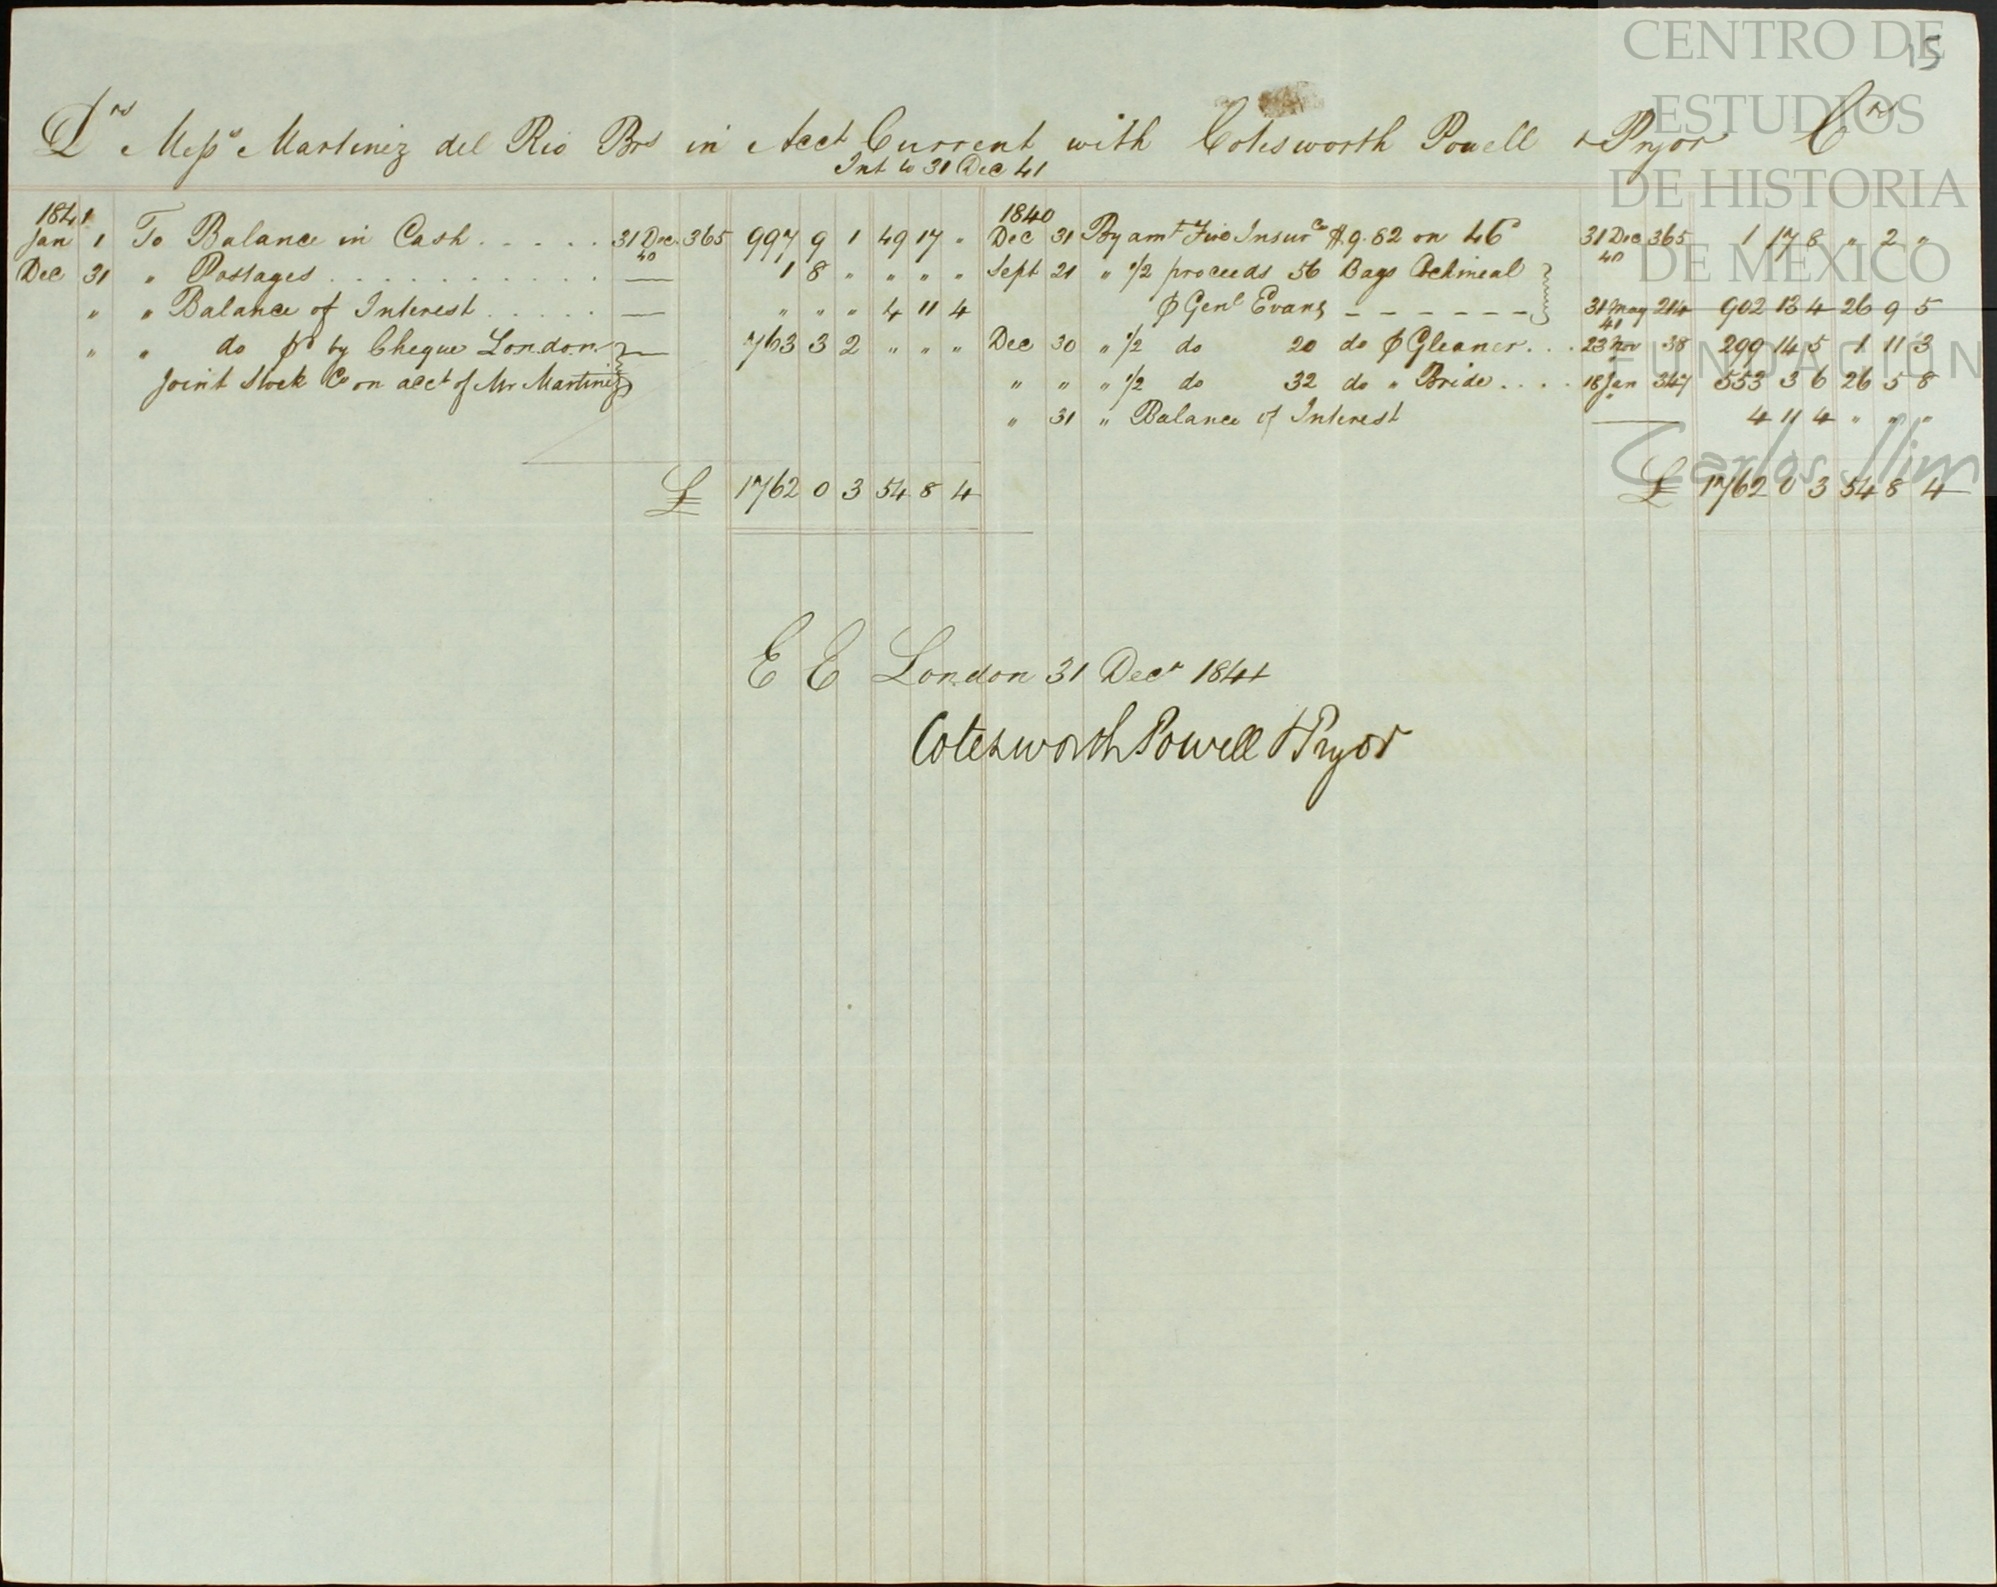 15
Drs Messrs Martinez del Rio Brs in Acct Current with Cotesworth Powell & Pryor Crs
Int to 31 Dec 41
1841
Jan 1 To Balance in Cash . . . . . 31 Dec 40 365 997 9 1 49 17 "
Dec 31 " Postages . . . . . . . . . . . — 1 8 " " " "
" " Balance of Interest . . . . . — " " " 4 11 4
" " do pd by Cheque London — 763 3 2 " " "
Joint Stock Co on acct of Mr Martinez
£ 1762 0 3 54 8 4
1840
Dec 31 By amt Fire Insurce $9.82 on 46 31 Dec 40 365 1 17 8 " 2 "
Sept 21 " 1/2 proceeds 56 Bags Cochineal
Genl Evans - - - - - - - 31 May 41 214 902 13 4 26 9 5
Dec 30 " 1/2 do 20 do Gleaner . . . 23 Nov " 38 299 14 5 1 11 3
" " " 1/2 do 32 do " Bride . . . . 18 Jan " 347 553 3 6 26 5 8
" 31 " Balance of Interest — 4 11 4 " " "
£ 1762 0 3 54 8 4
E E London 31 Decr 1841
Cotesworth Powell & Pryor
CENTRO DE
ESTUDIOS
DE HISTORIA
DE MÉXICO
FUNDACIÓN
Carlos Slim